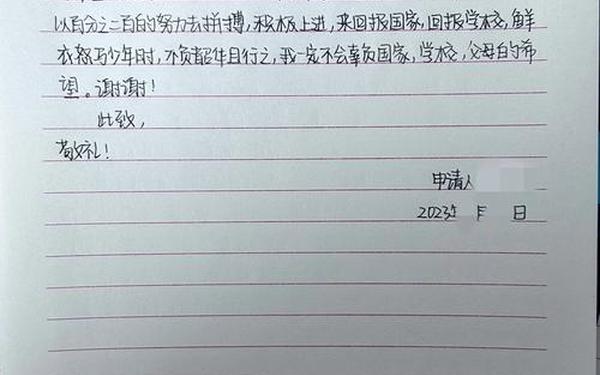 以百分之二百的努力去拼搏，积极上进，来回报国家，回报学校，鲜
衣怒马少年时，不负韶华且行之，我一定不会辜负国家，学校，父母的希
望。谢谢！
此致，
敬礼！
申请人
2023年 月 日